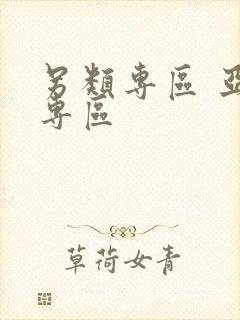 另類專區
專區
草荷女青